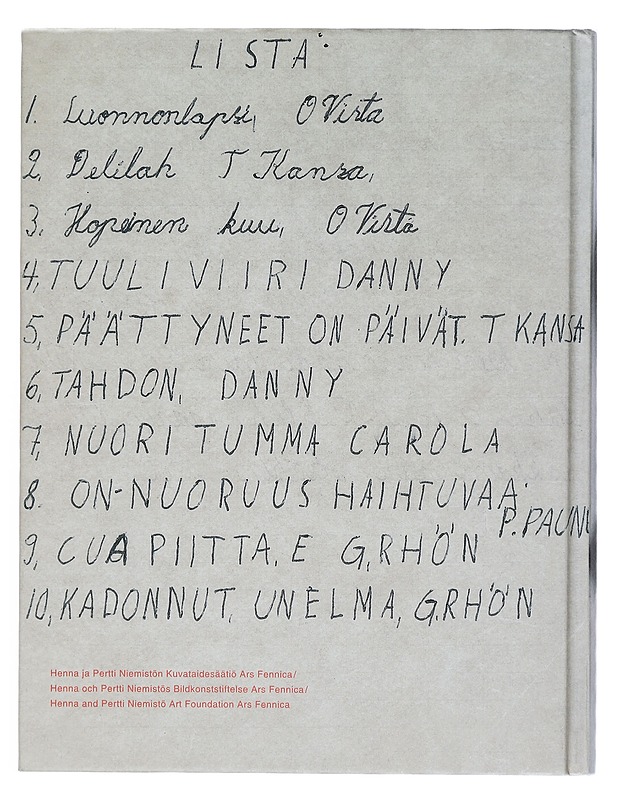 LISTA
1. Luonnonlapsi, O Virta
2, Delilah T Kansa,
3, Hopeinen kuu, O Virta
4, TUULIVIIRI DANNY
5, PÄÄTTYNEET ON PÄIVÄT. T KANSA
6, TAHDON, DANNY
7, NUORI TUMMA CAROLA
8. ON-NUORUUS HAIHTUVAA
P. PAUNU
9, CUA PIITTA, E G,RHÖN
10, KADONNUT, UNELMA, G.RHÖN
Henna ja Pertti Niemistön Kuvataidesäätiö Ars Fennica/
Henna och Pertti Niemistös Bildkonststiftelse Ars Fennica/
Henna and Pertti Niemistö Art Foundation Ars Fennica